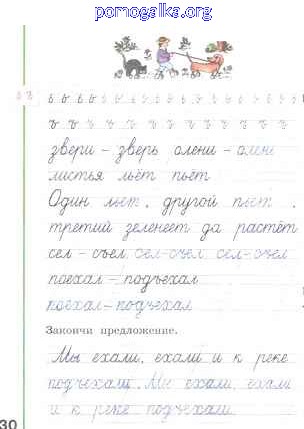 pomogalka.org
ь ъ ь ь ьь ь ь ь ь ь ь ь ь ь ь ь ь
ъ ъ ъ ъ ъ ъ ъ ъ ъ ъ ъ ъ
звери – зверь олени – олень
листья льёт пьёт
Один льет, другой пьет,
третий зеленеет да растёт
сел – съел сел – съел сел – съел
поехал – подъехал
поехал – подъехал
Закончи предложение.
Мы ехали, ехали и к реке
подъехали. Мы ехали, ехали
и к реке подъехали.
30